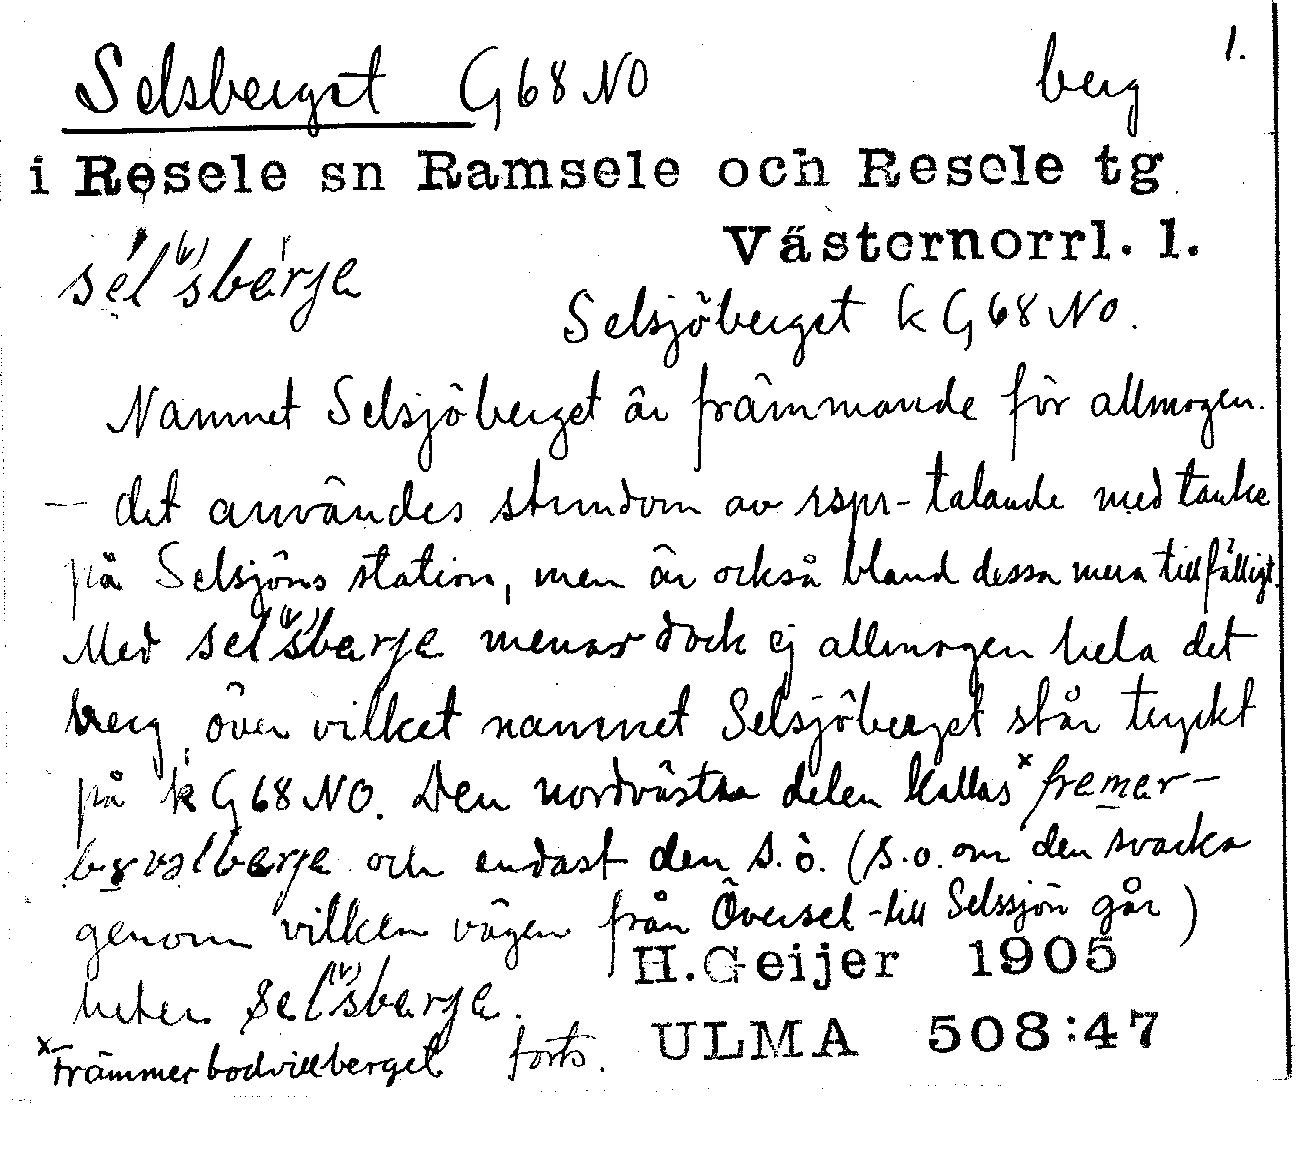 1.
Selsberget G68NO berg
i Resele sn Ramsele och Resele tg
Västernorrl. l.
sel(ʷ)sbærje
Selsjöberget k G68NO.
Namnet Selsjöberget är främmande för allmogen.
— det användes stundom av rspr-talande med tanke
på Selsjöns station, men är också bland dessa mera tillfälligt.
Med sel(ʷ)sbærje menar dock ej allmogen hela det
berg, över vilket namnet Selsjöberget står tryckt
på k G68NO. Den nordvästra delen kallas x fremer-
och endast den s.ö. (s.o. om den svacka
genom vilken vägen från Översel till Selssjön går)
heter sel(ʷ)sbærje.
H.Geijer 1905
x Främmerbodvillberget forts. ULMA 508:47